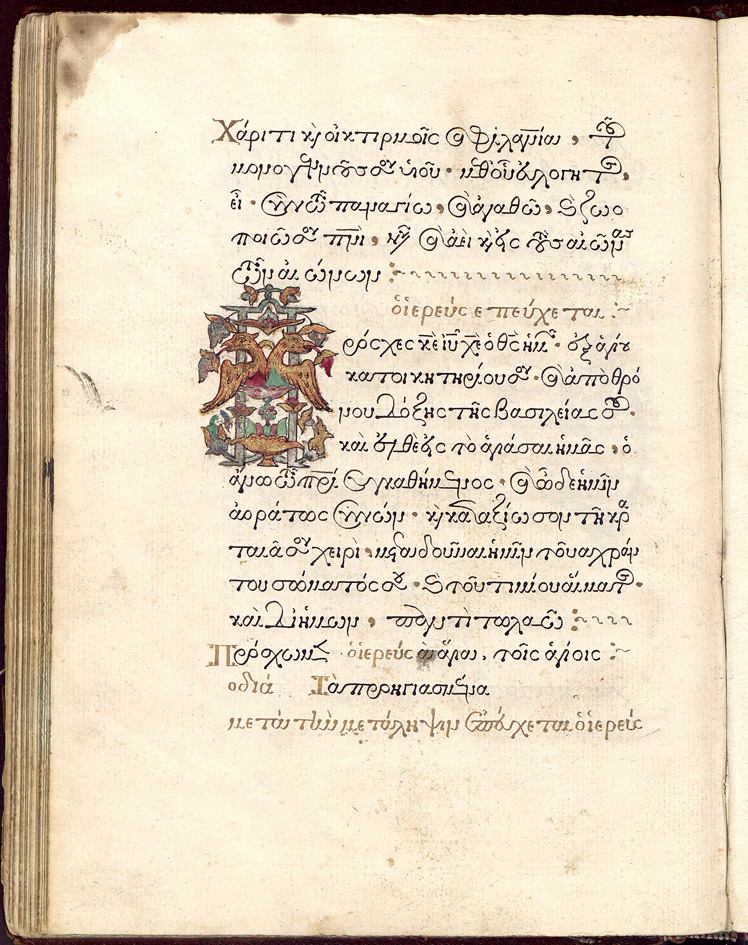 Χάριτι κ οἰκτιρμοῖς κ φιλανθρωπίαι, τοῦ
μονογενοῦς σου υἱοῦ· μεθ οὗ εὐλογητὸς,
εἶ· σὺν τῶ παναγίω, κ ἀγαθῶ, κ ζωο
ποιῶ σου πνι, νῦν κ ἀεὶ κ εἰς τοὺς αἰῶνας
τῶν αἰώνων :~
ὁ ἱερεὺς ἐπεύχεται :~
ρόσχες κε ἰυ χε ὁ θς ἡμῶν· ἐξ ἁγίου
κατοικητηρίου σου· κ ἀπὸ θρό
νου δόξης τῆς βασιλείας σου·
καὶ ἐλθὲ εἰς τὸ ἁγιάσαι ἡμᾶς, ὁ
ἄνω τῶ πρι συγκαθήμενος· κ ὧδε ἡμῖν
ἀοράτως συνών· κ καταξίωσον τῆ κρα
ταιᾶ σου χειρὶ, μεταδοῦναι ἡμῖν τοῦ ἀχράν
του σώματός σου· κ τοῦ τιμίου αἵματος·
καὶ δι ἡμῶν, παντὶ τῶ λαῶ :~
Πρόσχωμεν ὁ ἱερεὺς τὰ ἅγια, τοῖς ἁγίοις :~
ο διά Τὰ προηγιασμένα
μετὰ τὴν μετάληψιν ἐπεύχεται ὁ ἱερεύς